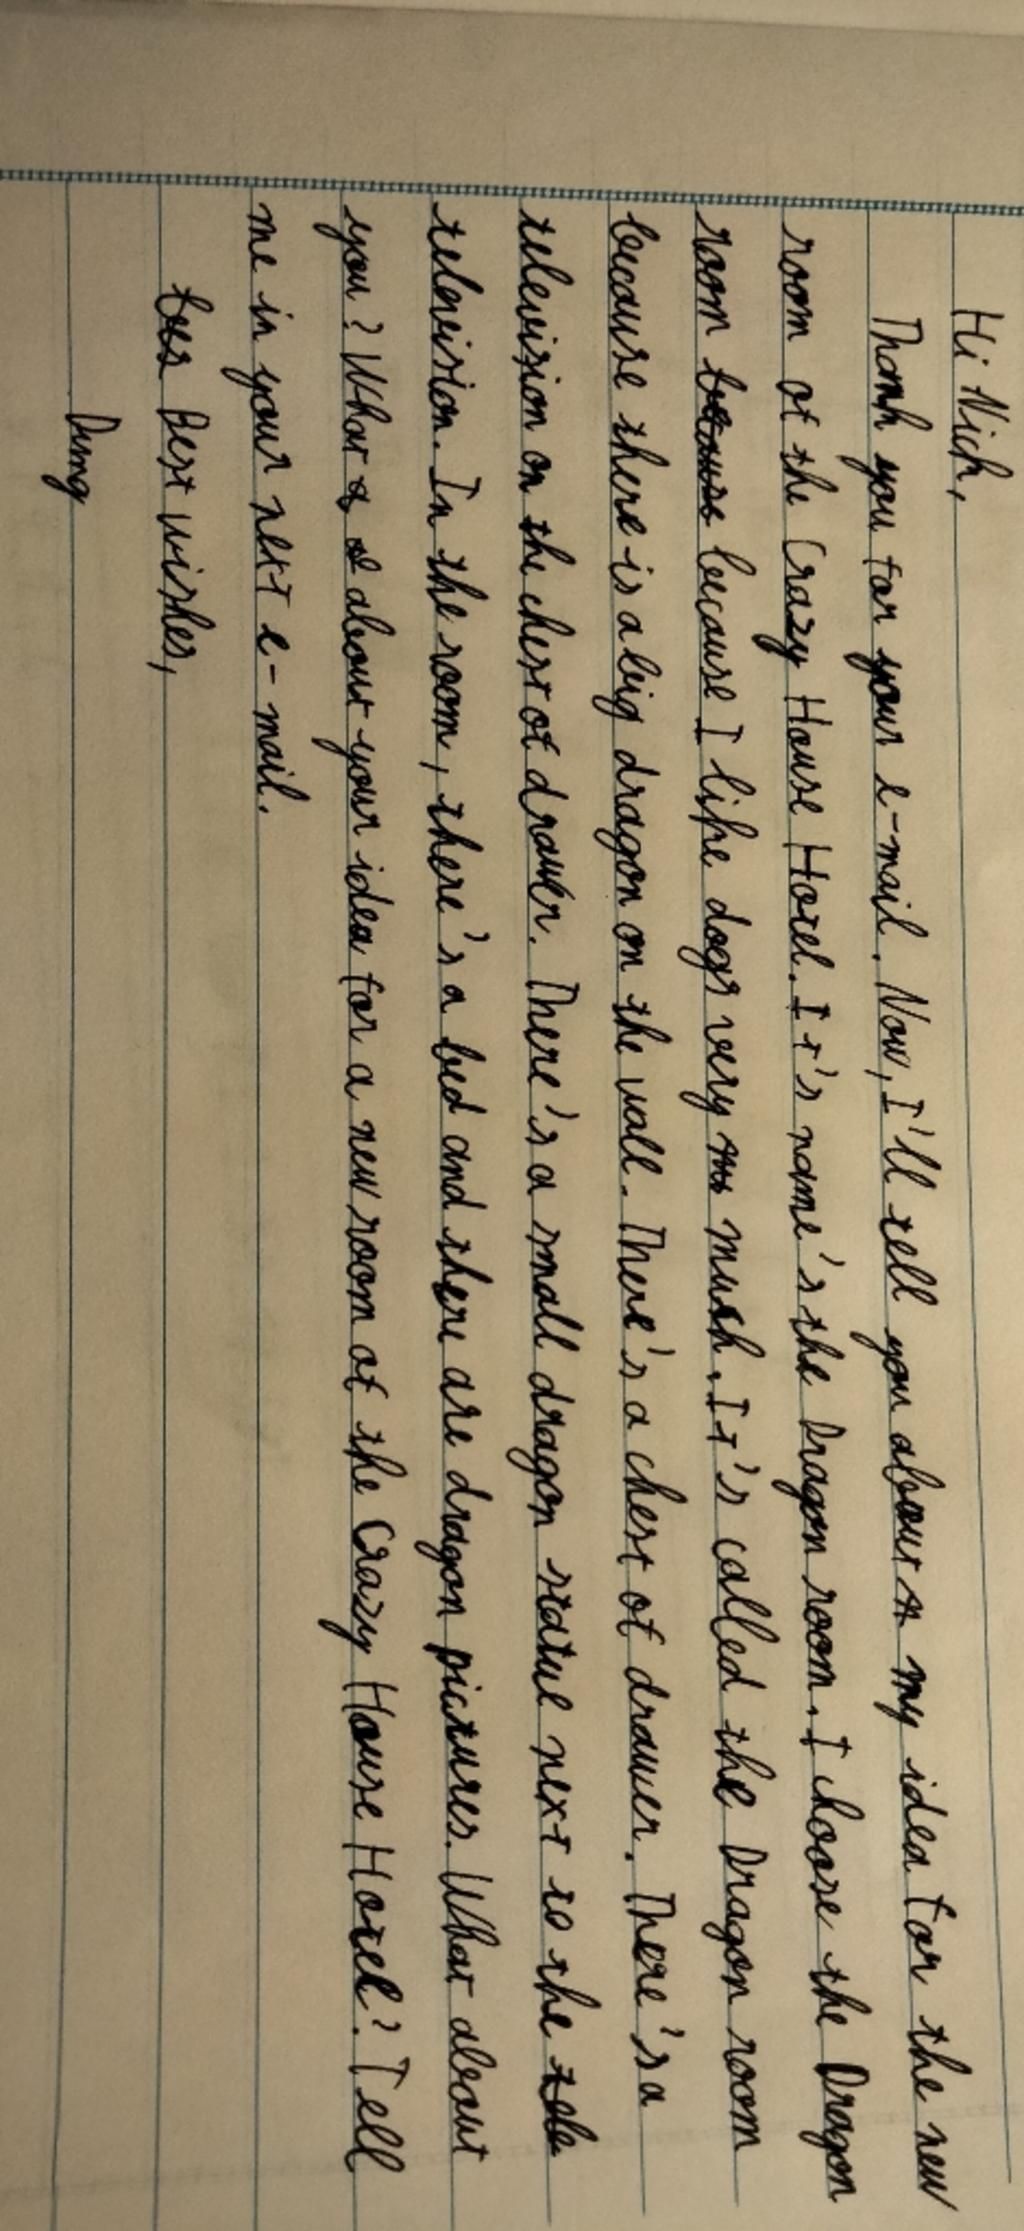 Hi Nick,
Thank you for your e-mail. Now, I'll tell you about my idea for the new
room of the Crazy House Hotel. It's name's the Dragon room. I choose the Dragon
room because I like dogs very much. It's called the Dragon room
because there is a big dragon on the wall. There's a chest of drawer. There's a
television on the chest of drawer. There's a small dragon statue next to the
television. In the room, there's a bed and there are dragon pictures. What about
you? What about your idea for a new room of the Crazy House Hotel? Tell
me in your next e-mail.
Best wishes,
Dung